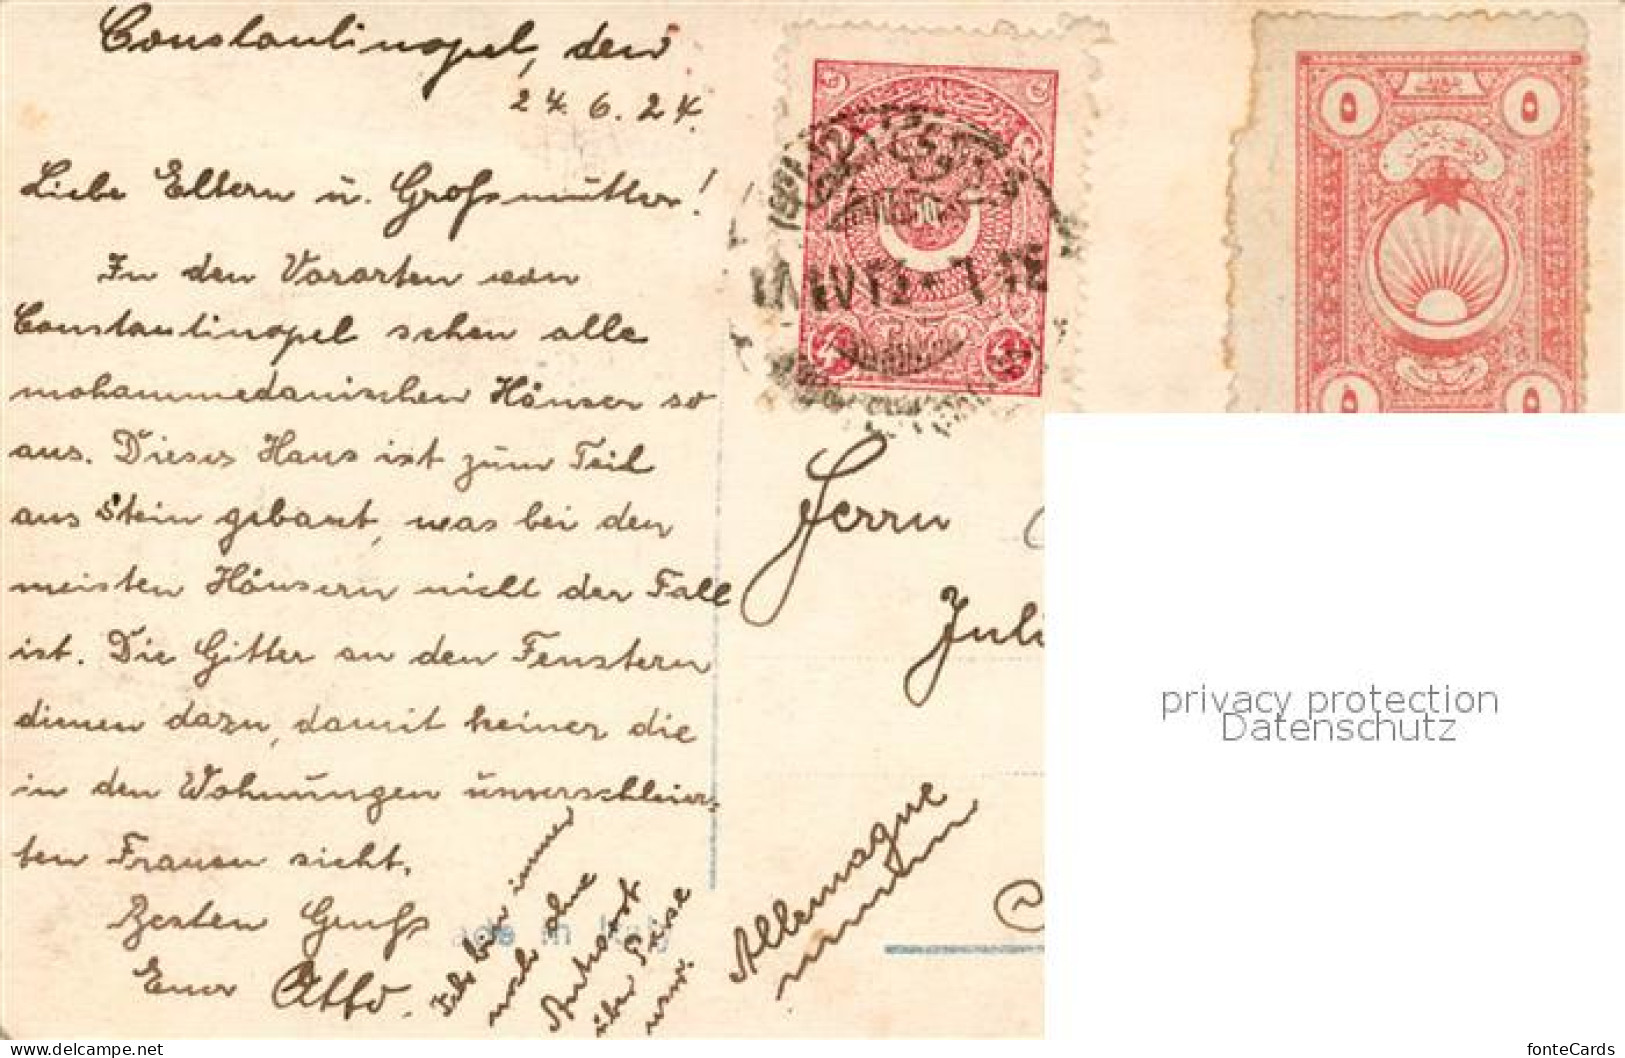 Constantinopel, den
24.6.24.
Liebe Eltern u. Grofsmutter!
In den Vororten von
Constantinopel sehen alle
mohammedanischen Häuser so
aus. Dieses Haus ist zum Teil
aus Stein gebaut, was bei den
meisten Häusern nicht der Fall
ist. Die Gitter an den Fenstern
dienen dazu, damit keiner die
in den Wohnungen unverschleier=
ten Frauen sieht.
Besten Grufs
Euer Otto.
Ich bin immer
noch ohne
Antwort
über Preise
usw.
Herrn
Juli
Allemagne
٥ ٥
privacy protection
Datenschutz
delcampe.net
fonteCards